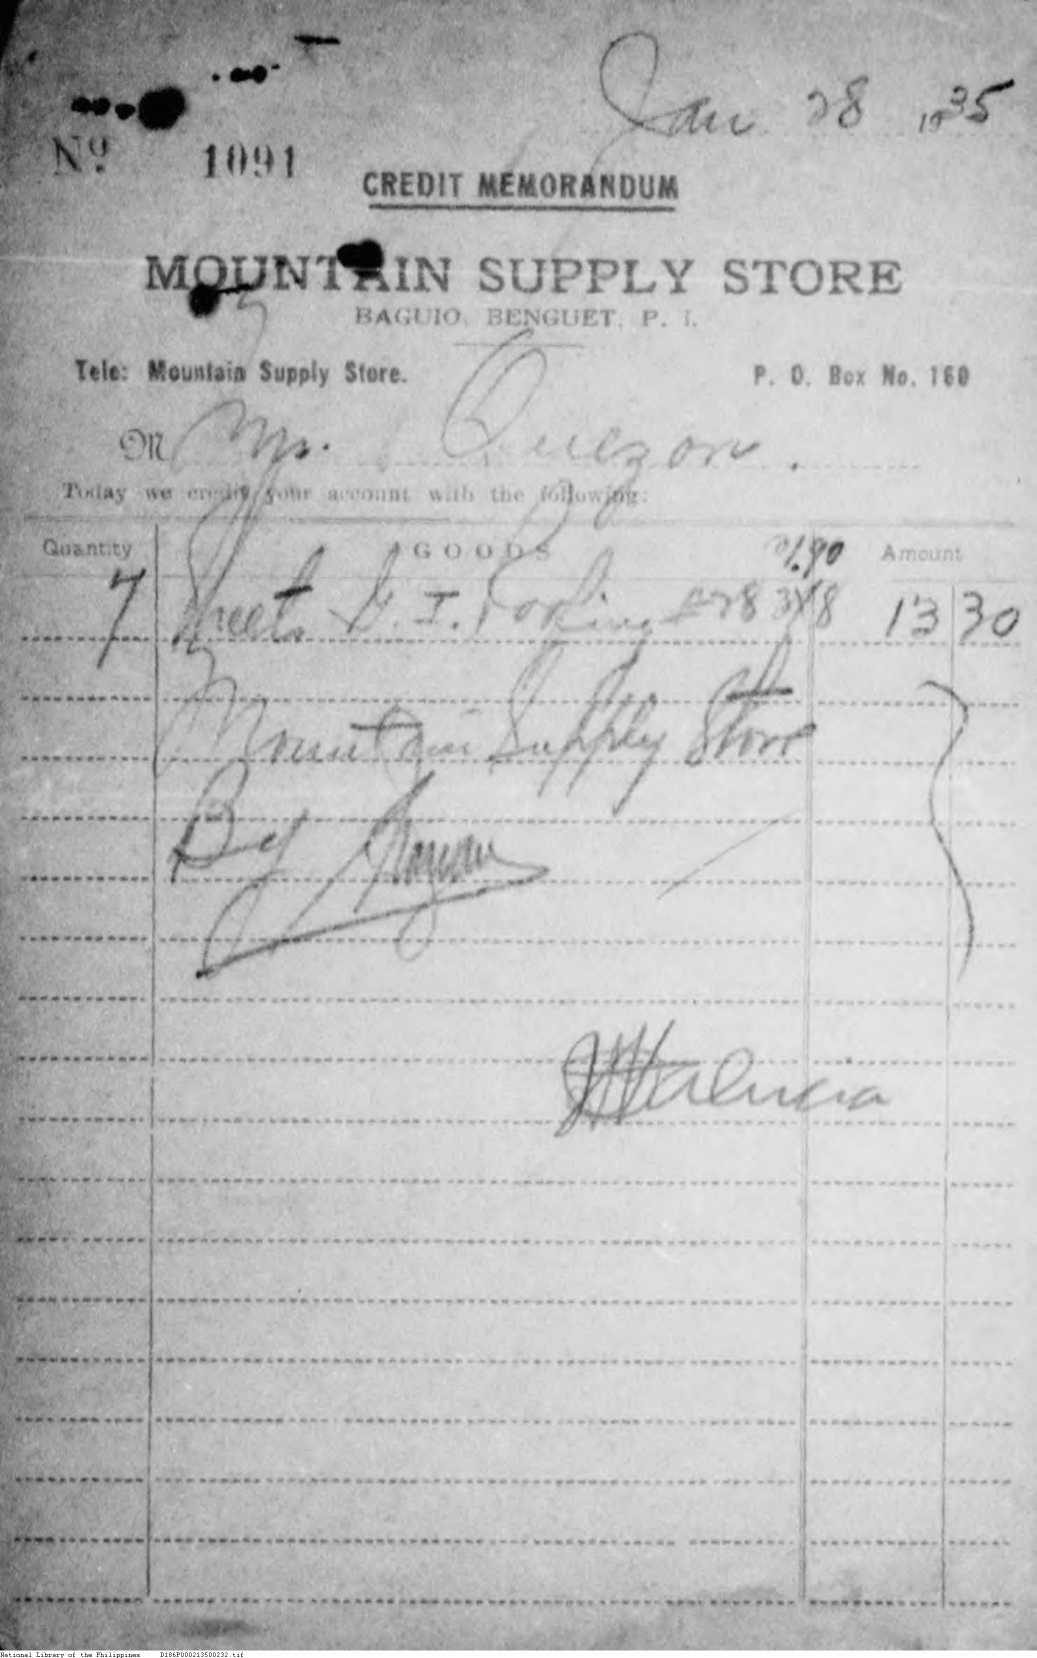 Jan 28 1935
No 1091
CREDIT MEMORANDUM
MOUNTAIN SUPPLY STORE
BAGUIO, BENGUET, P. I.
Tele: Mountain Supply Store. P. O. Box No. 160
M Mr. Quezon.
Today we credit your account with the following:
Quantity GOODS Amount
1.90
7 Sheets G. I. Roofing #28 3x8 13 30
Mountain Supply Store
By
National Library of the Philippines D186P000213500232.tif